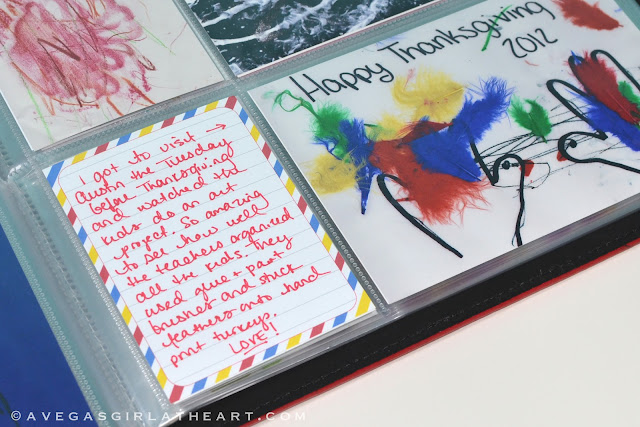 Happy Thanksgiving
2012
I got to visit →
Austin the Tuesday
before Thanksgiving
and watched the
kids do an art
project. So amazing
to see how well
the teachers organized
all the kids. They
used glue + paint
brushes and stuck
feathers onto hand
print turkeys.
LOVE!
©AVEGASGIRLATHEART.COM